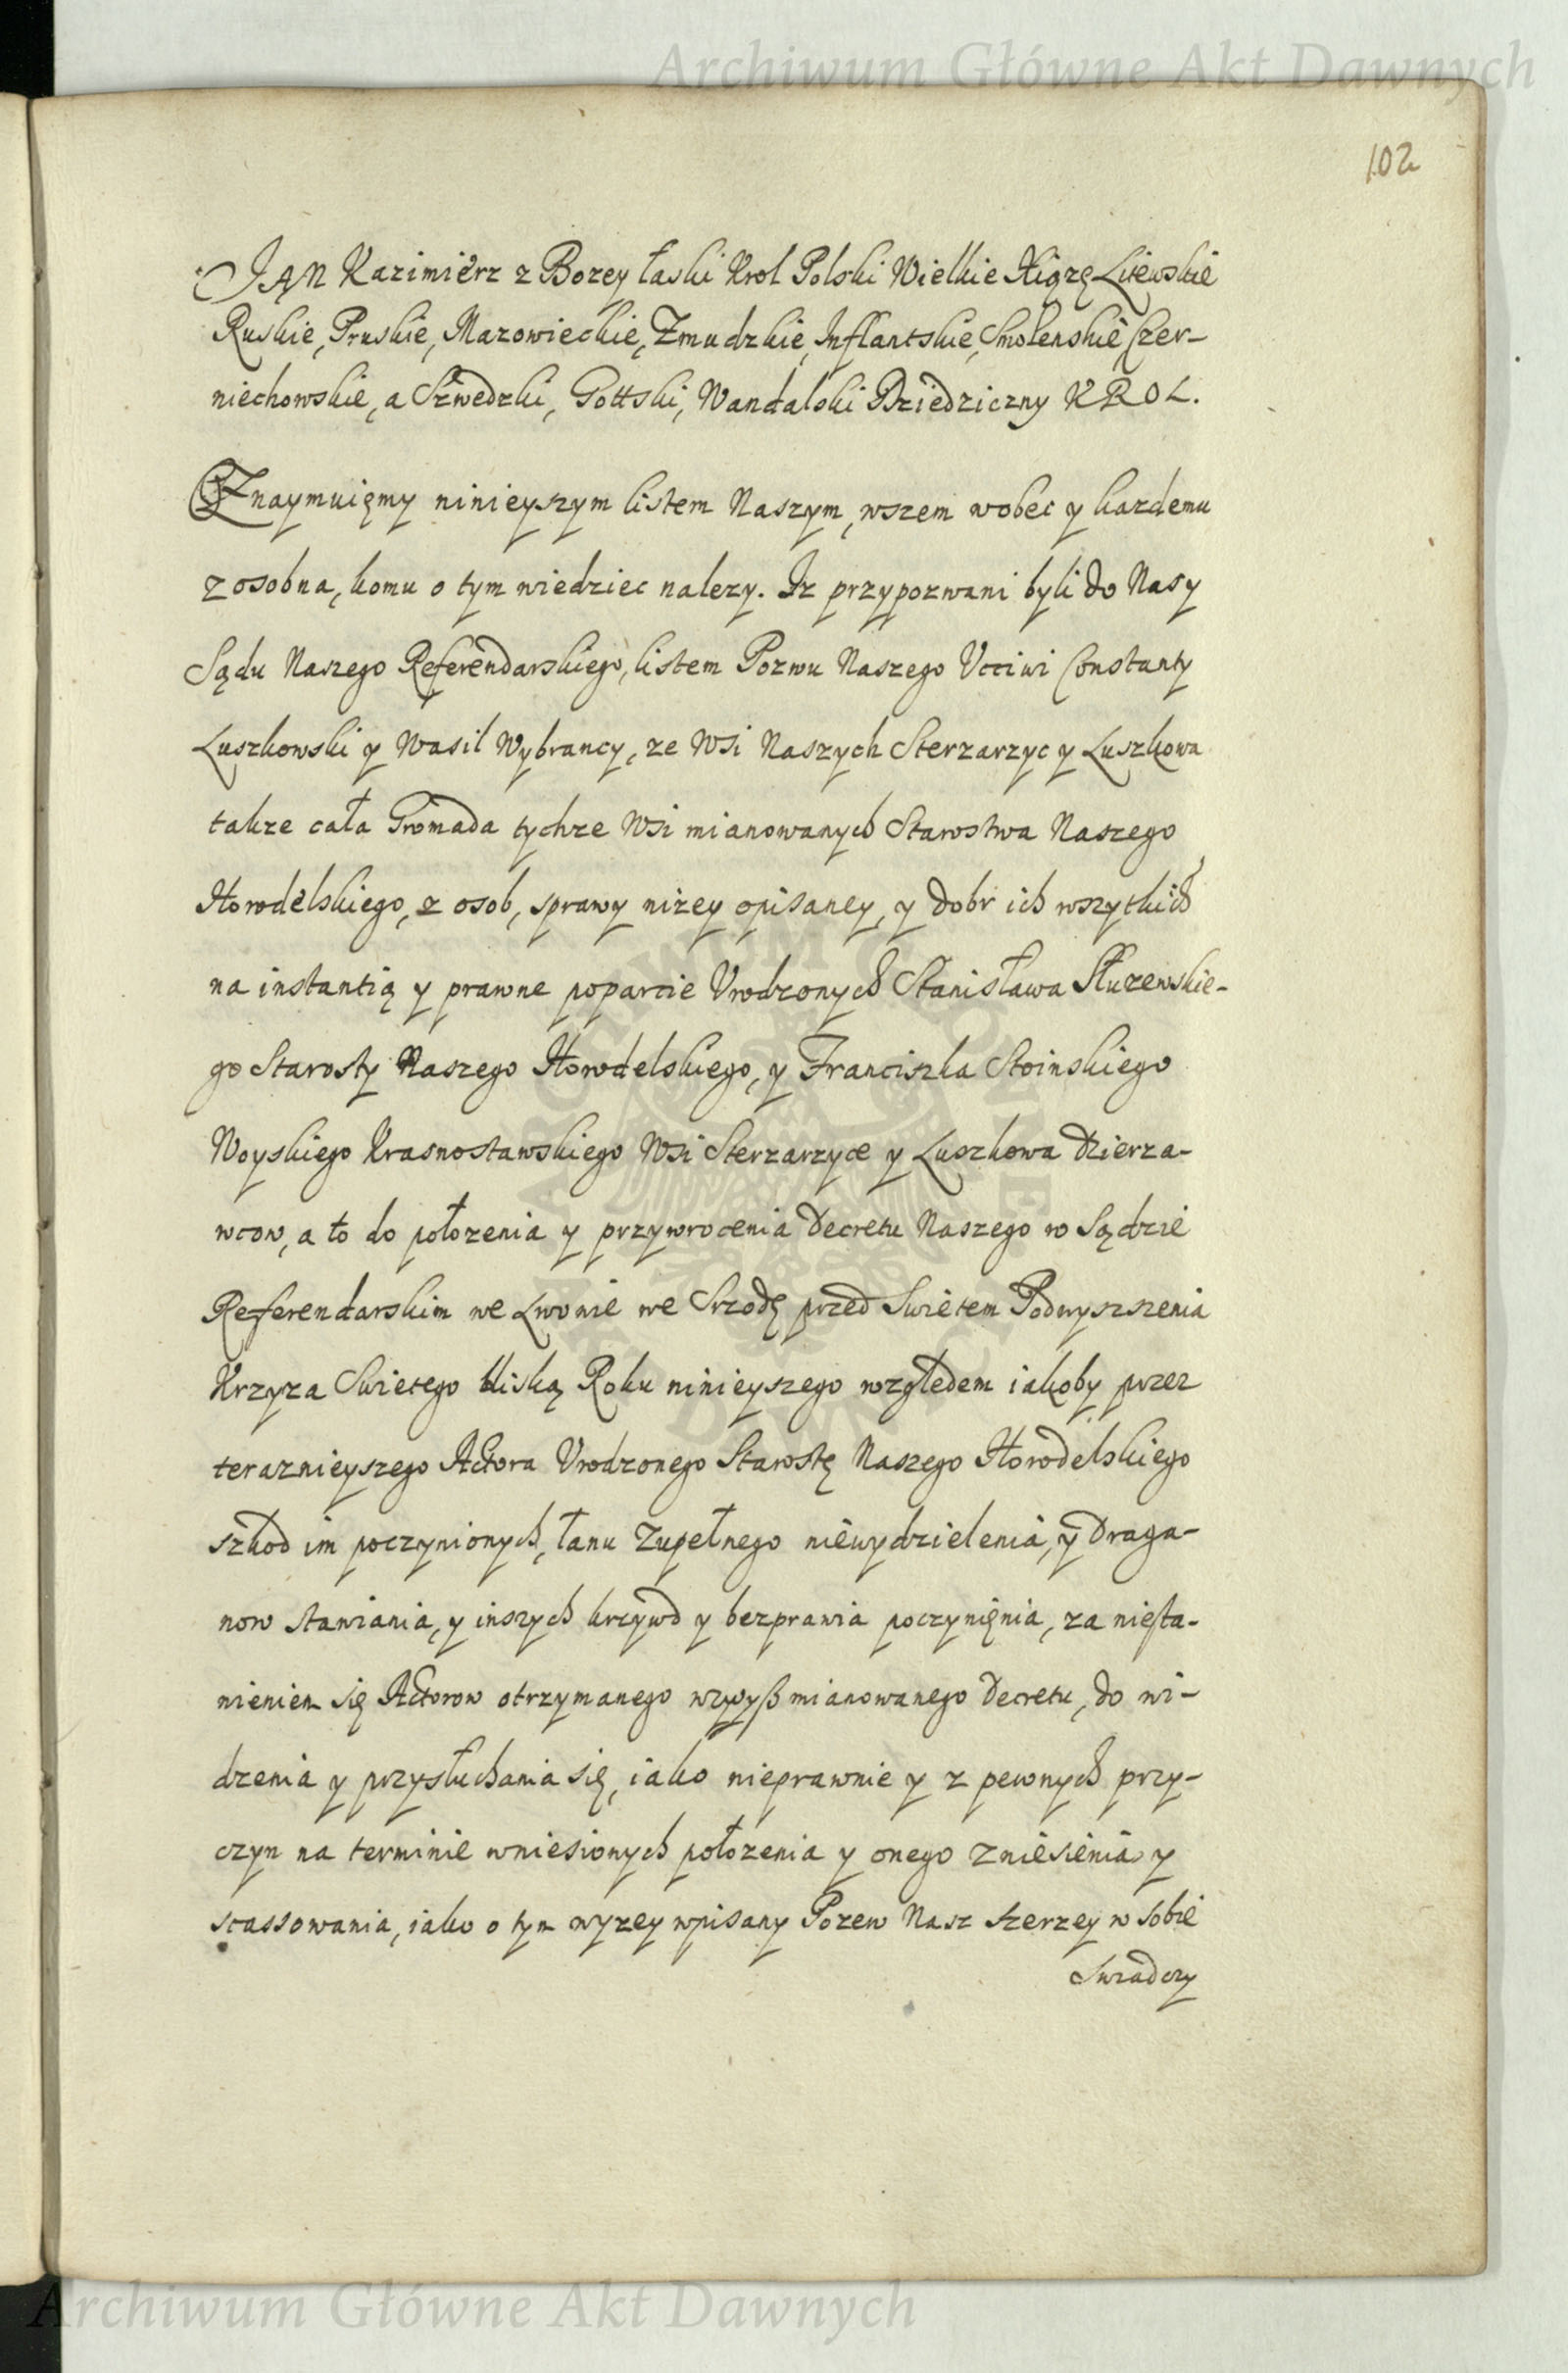 Archiwum Główne Akt Dawnych
102
JAN Kazimierz z Bozey łaski Krol Polski Wielkie Xiązę Litewskie
Ruskie, Pruskie, Mazowieckie, Zmudzkie, Inflantskie, Smolenskie, Czer-
niechowskie, a Szwedzki, Gottski, Wandalski Dziedziczny KROL.
Oznaymuięmy ninieyszym listem Naszym, wszem wobec y kazdemu
z osobna, komu o tym wiedziec nalezy. Iz przypozwani byli do Nas y
Sądu Naszego Referendarskiego, listem Pozwu Naszego Uczciwi Constanty
Luszkowski y Wasil Wybrancy, ze Wsi Naszych Sterzarzyc y Luszkowa
takze cała Gromada tychze Wsi mianowanych Starostwa Naszego
Horodelskiego, z osob, sprawy nizey opisaney, y dobr ich wszytkich
na instantią y prawne poparcie Urodzonych Stanisława Słuzewskie-
go Starosty Naszego Horodelskiego, y Franciszka Stoinskiego
Woyskiego Krasnostawskiego Wsi Sterzarzyce y Luszkowa Dzierza-
wcow, a to do połozenia y przywrocenia Decretu Naszego w Sądzie
Referendarskim we Lwowie we Srzodę przed Swietem Podwyszszenia
Krzyza Swietego bliską Roku ninieyszego względem iakoby przez
teraznieyszego Actora Urodzonego Starostę Naszego Horodelskiego
szkod im poczynionych, łanu Zupełnego niewydzielenia, y Draga-
now stawiania, y inszych krzywd y bezprawia poczynięnia, za niesta-
nieniem się Actorow otrzymanego wzwyß mianowanego Decretu, do wi-
dzenia y przysłuchania się, iako nieprawnie y z pewnych przy-
czyn na terminie wniesionych połozenia y onego Zniesienia y
scassowania, iako o tym wyzey wpisany Pozew Nasz szerzey w sobie
Swiadczy
Archiwum Główne Akt Dawnych